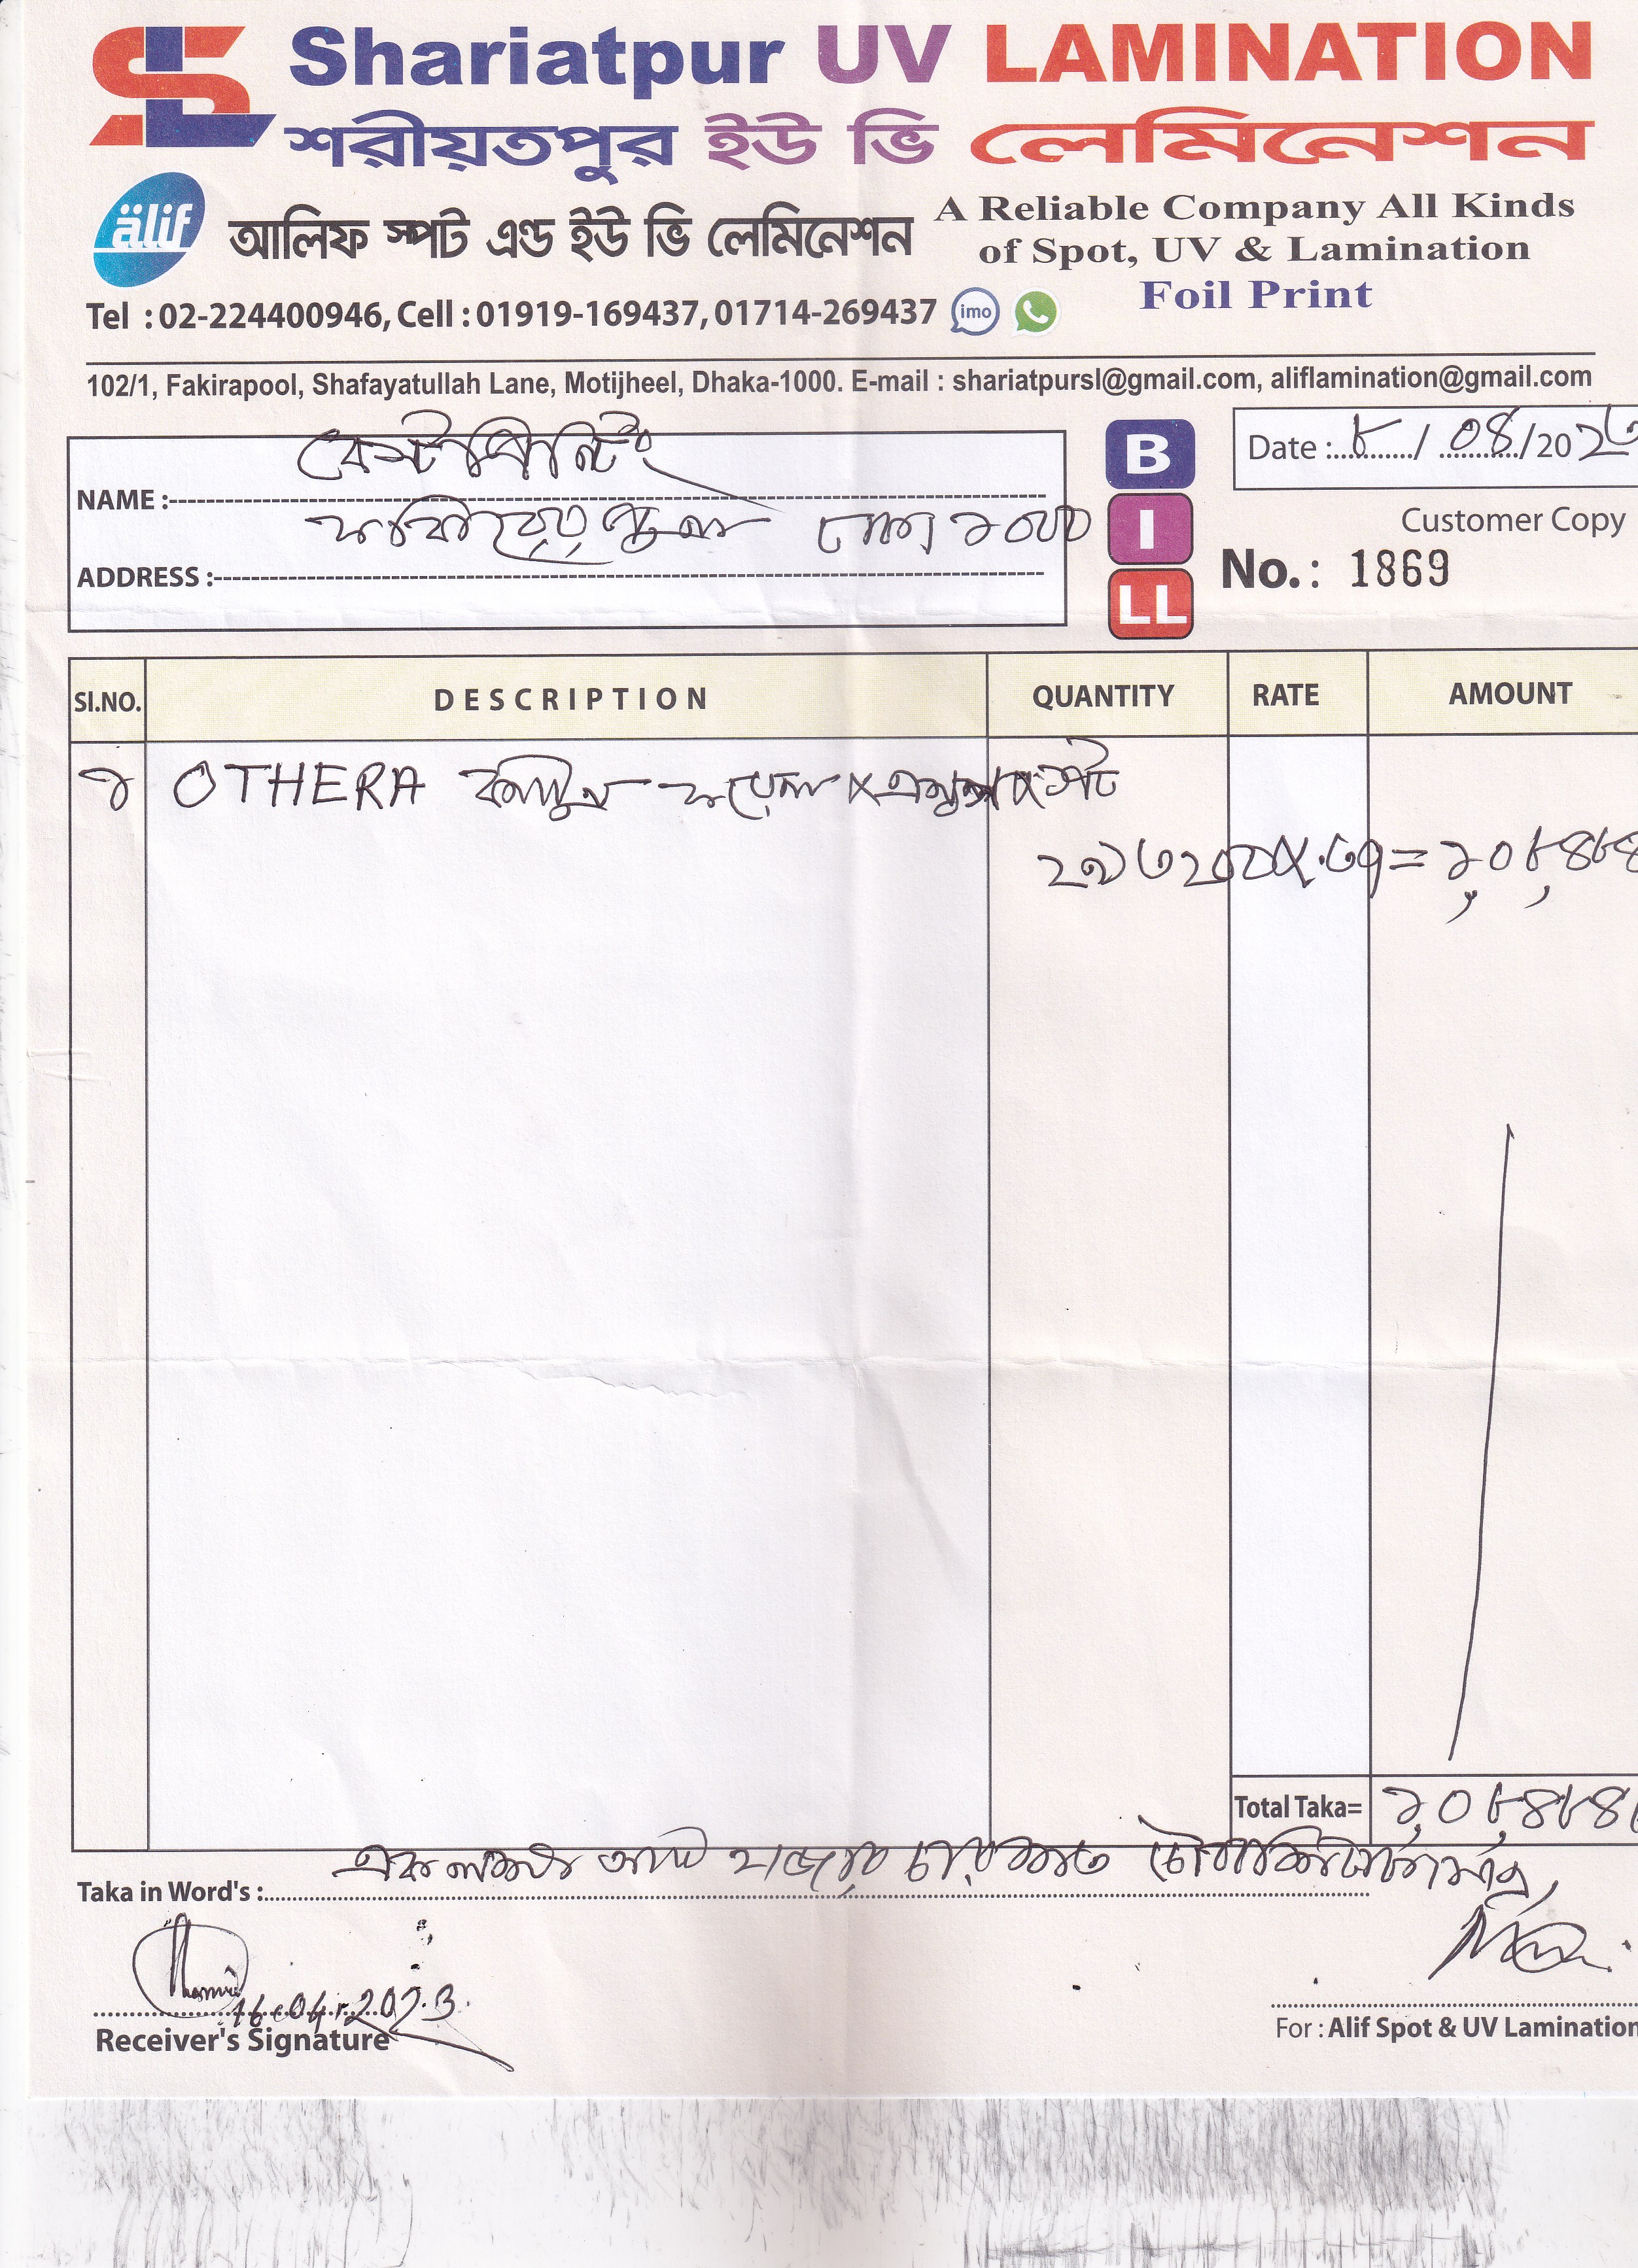 Shariatpur UV LAMINATION
শরীয়তপুর ইউ ভি লেমিনেশন
älif আলিফ স্পট এন্ড ইউ ভি লেমিনেশন
A Reliable Company All Kinds
of Spot, UV & Lamination
Foil Print
Tel : 02-224400946, Cell : 01919-169437, 01714-269437 imo
102/1, Fakirapool, Shafayatullah Lane, Motijheel, Dhaka-1000. E-mail : shariatpursl@gmail.com, aliflamination@gmail.com
NAME : বেস্ট প্রিন্টিং
ADDRESS : ঢাকা ১০০০
BILL
Date : ৮ / 08 / 20২৩
Customer Copy
No. : 1869
SI.NO. DESCRIPTION QUANTITY RATE AMOUNT
১ OTHERA কার্টুন
২৯৩২০০x.৩৭= ১,০৮,৪৮৪
Total Taka= ১,০৮,৪৮৪
Taka in Word's : এক লক্ষ আট হাজার চারশত চৌরাশি টাকা মাত্র
16.04.2023.
Receiver's Signature
For : Alif Spot & UV Lamination